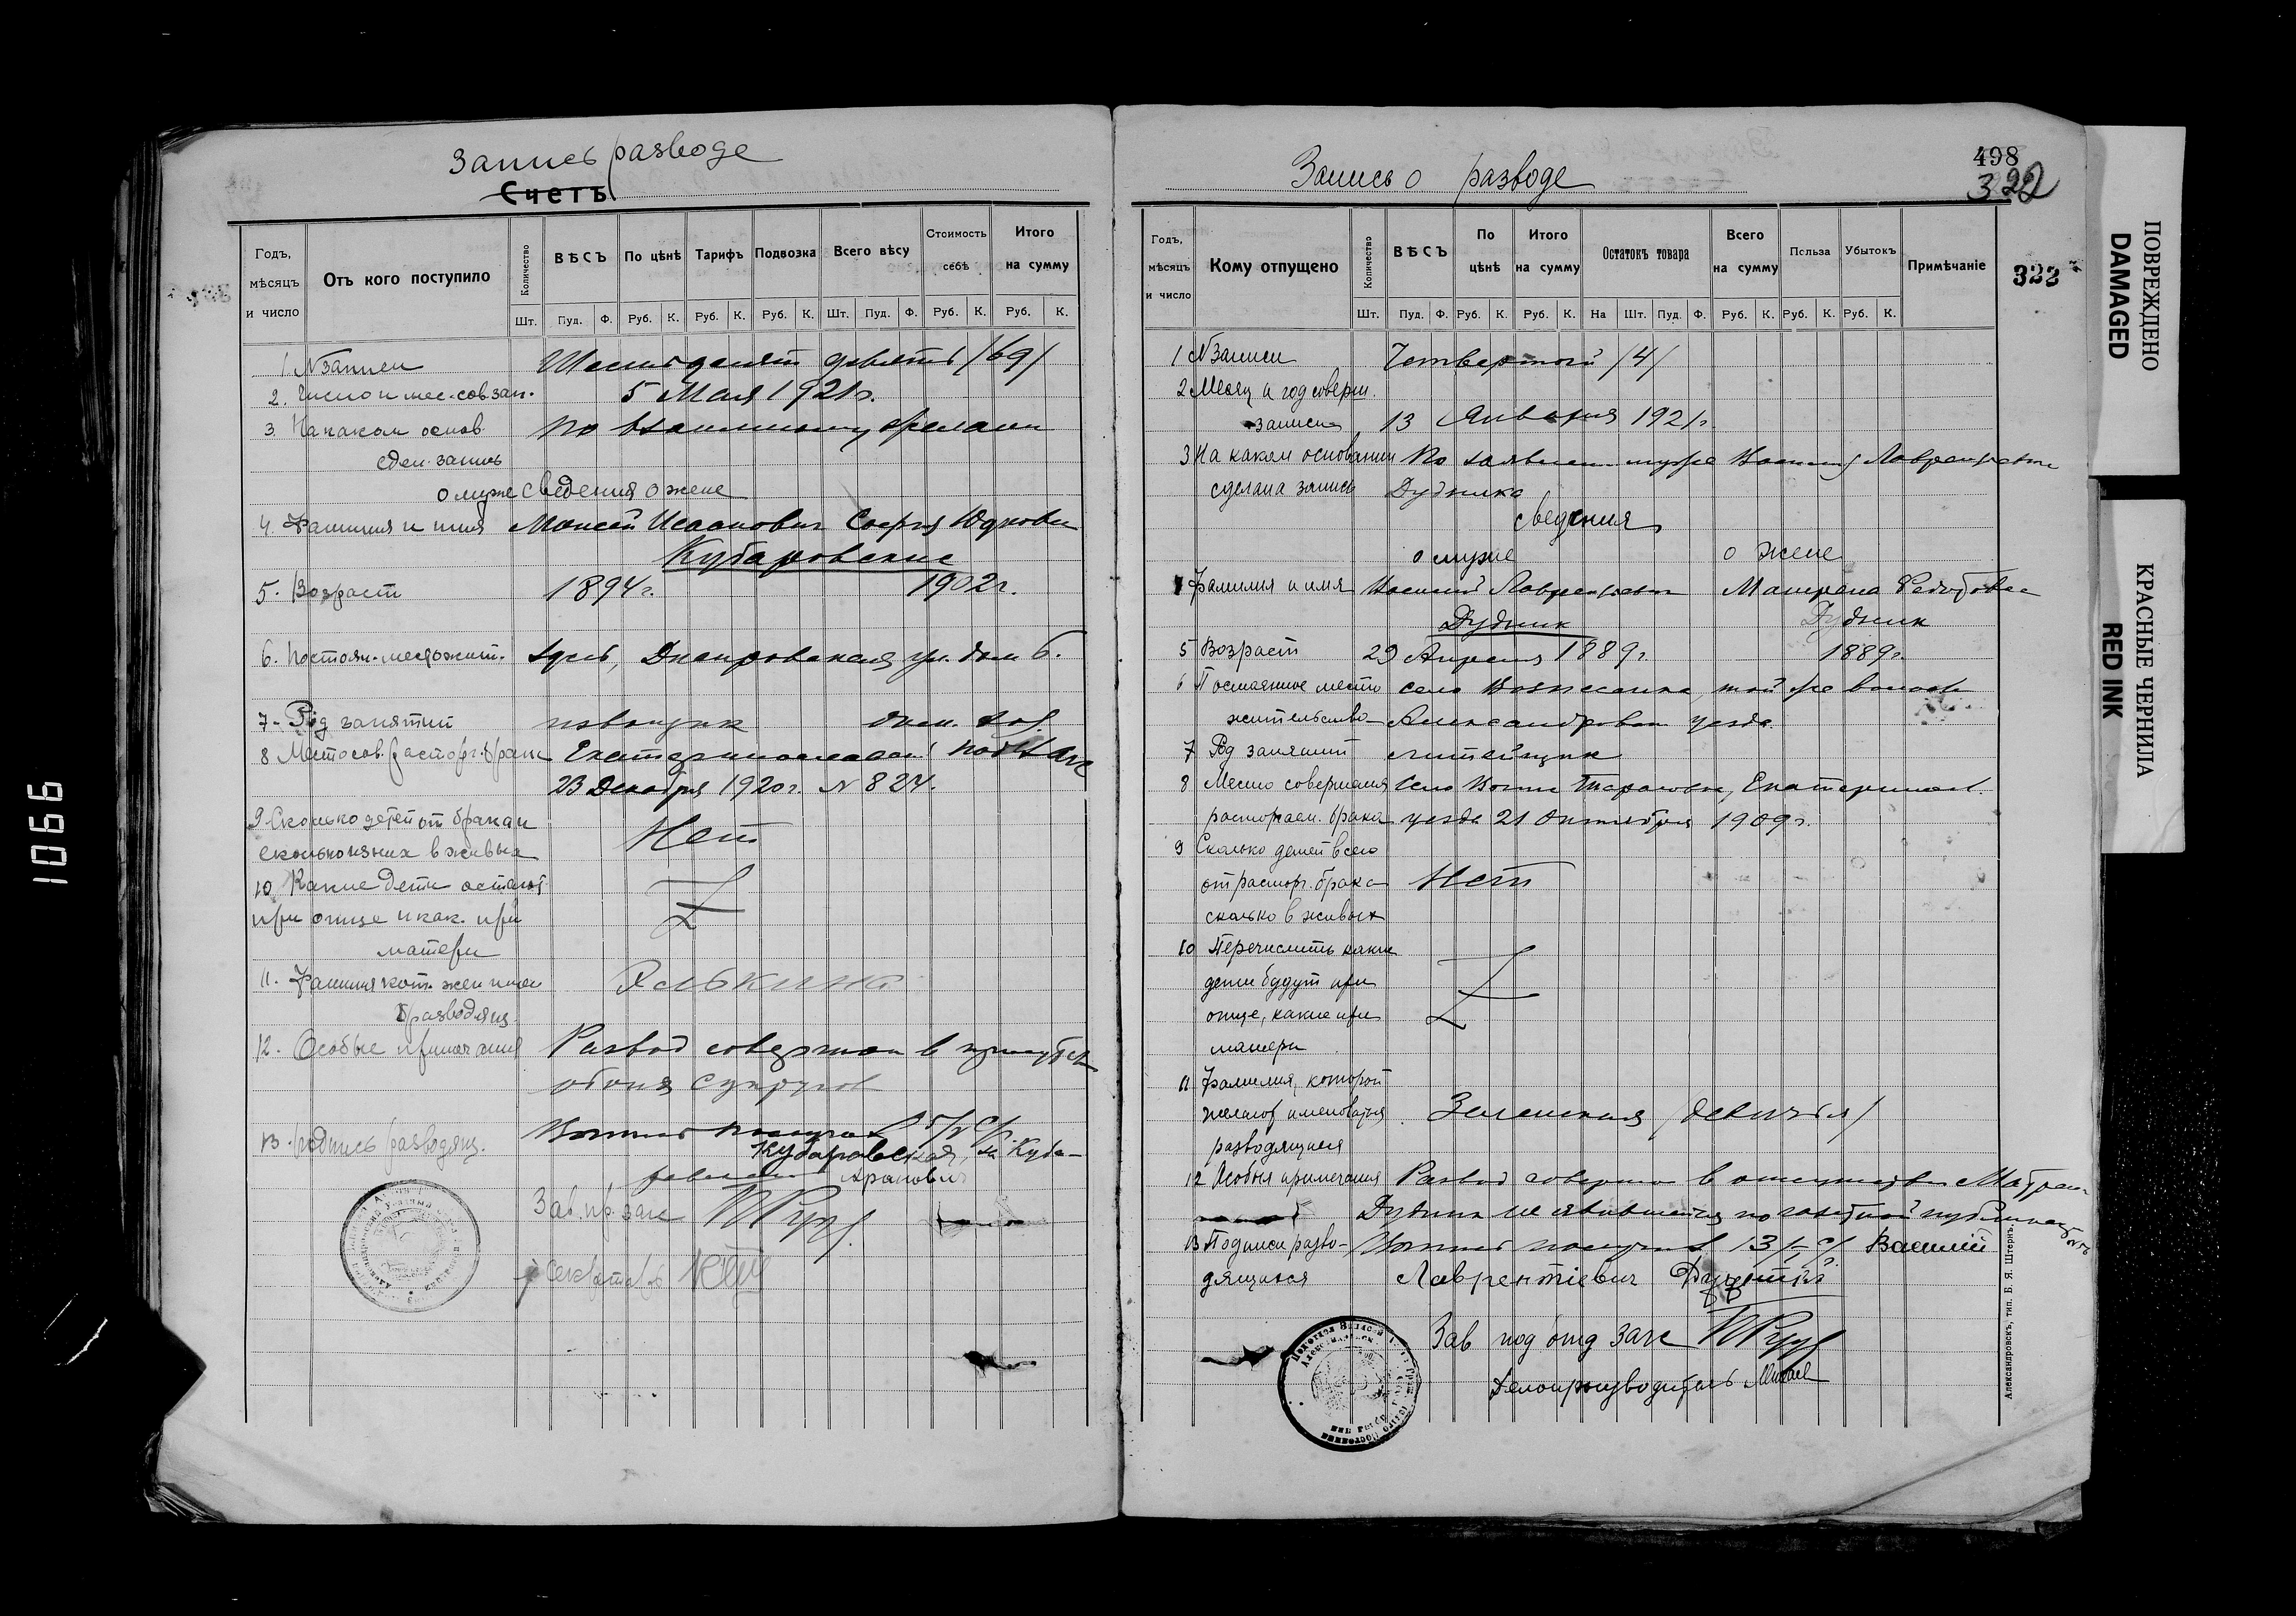 Запись разводе
Счетъ
Годъ, мѣсяцъ и число
Отъ кого поступило
Количество
Шт.
ВѢСЪ
Пуд. Ф.
По цѣнѣ
Руб. К.
Тарифъ
Руб. К.
Подвозка
Руб. К.
Всего вѣсу
Шт. Пуд. Ф.
Стоимость себѣ
Руб. К.
Итого на сумму
Руб. К.
1 N Записи Шестьдесят девять /69/
2. Число и мес. сов. зап. 5 Мая 1921 г.
3. На каком основ. по взаимному желани
сдел. запись
о муже сведения о жене
4. Фамилия и имя Моисей Исаакович София Юдковн
Кубаровские
5. Возраст 1894 г. 1902 г.
6. Постоян. место жит. здесь, Днепровская ул. дом 6.
7 - Род занятий извощик дом. хоз.
8 Место сов. расторг. брак Екатеринослав. подзагс
23 Декабря 1920 г. N 824.
9. Сколько детей от брака и
сколько из них в живых
Нет
10 Какие дети остают.
при отце и как. при
матери
Z
11. Фамилия кот. жел имен
разводящ.
Элькина
12. Особые примечания Развод совершон в присутств
обоих супругов
13. подпись разводящ. Копию получил 5/V с/г.
Кубаровская, М Куба-
Зав. п/о загс
Секретарь
Запись о разводе
498
322
323
Годъ, мѣсяцъ и число
Кому отпущено
Количество
Шт.
ВѢСЪ
Пуд. Ф.
По цѣнѣ
Руб. К.
Итого на сумму
Руб. К.
Остатокъ товара
На Шт. Пуд. Ф.
Всего на сумму
Руб. К.
Польза
Руб. К.
Убытокъ
Руб. К.
Примѣчаніе
1 N Записи Четвертой /4/
2 Месяц и год соверш.
записи 13 Января 1921 г.
3 На каком основании По заявлен. мужа Василия Лаврентьевич
сделана запись Дудника
сведения
о муже о жене
Фамилия и имя Василий Лаврентьевич Матрена Федотовна
Дудник Дудник
5 Возраст 29 Апреля 1889 г. 1889 г.
6 Постоянное место село Вознесенка, той же волост
жительство Александровск уезда.
7 Род занятий литейщик
8 Место совершения Село Тарасовка, Екатериносл.
расторжен. брака уезда 21 Октября 1909 г.
9 Сколько детей всего
от расторг. брака Нет
сколько в живых
10 Перечислить какие
дети будут при
отце, какие при
матери
Z
11 Фамилия, которой
желают именоватся Зеленская /девичья/
разводящиеся
12 Особыя примечания Развод совершон в отсутствии Матрен
Дудник не явившейся по газетной публикац
13 Подписи разво- Копию получил 13/I с/г. Василій
дящихся Лаврентіевич Дудник
Зав под отд Загс
Делопроизводитель
Александровскъ, тип. Б. Я. Штернъ.
ПОВРЕЖДЕНО
DAMAGED
КРАСНЫЕ ЧЕРНИЛА
RED INK
1066